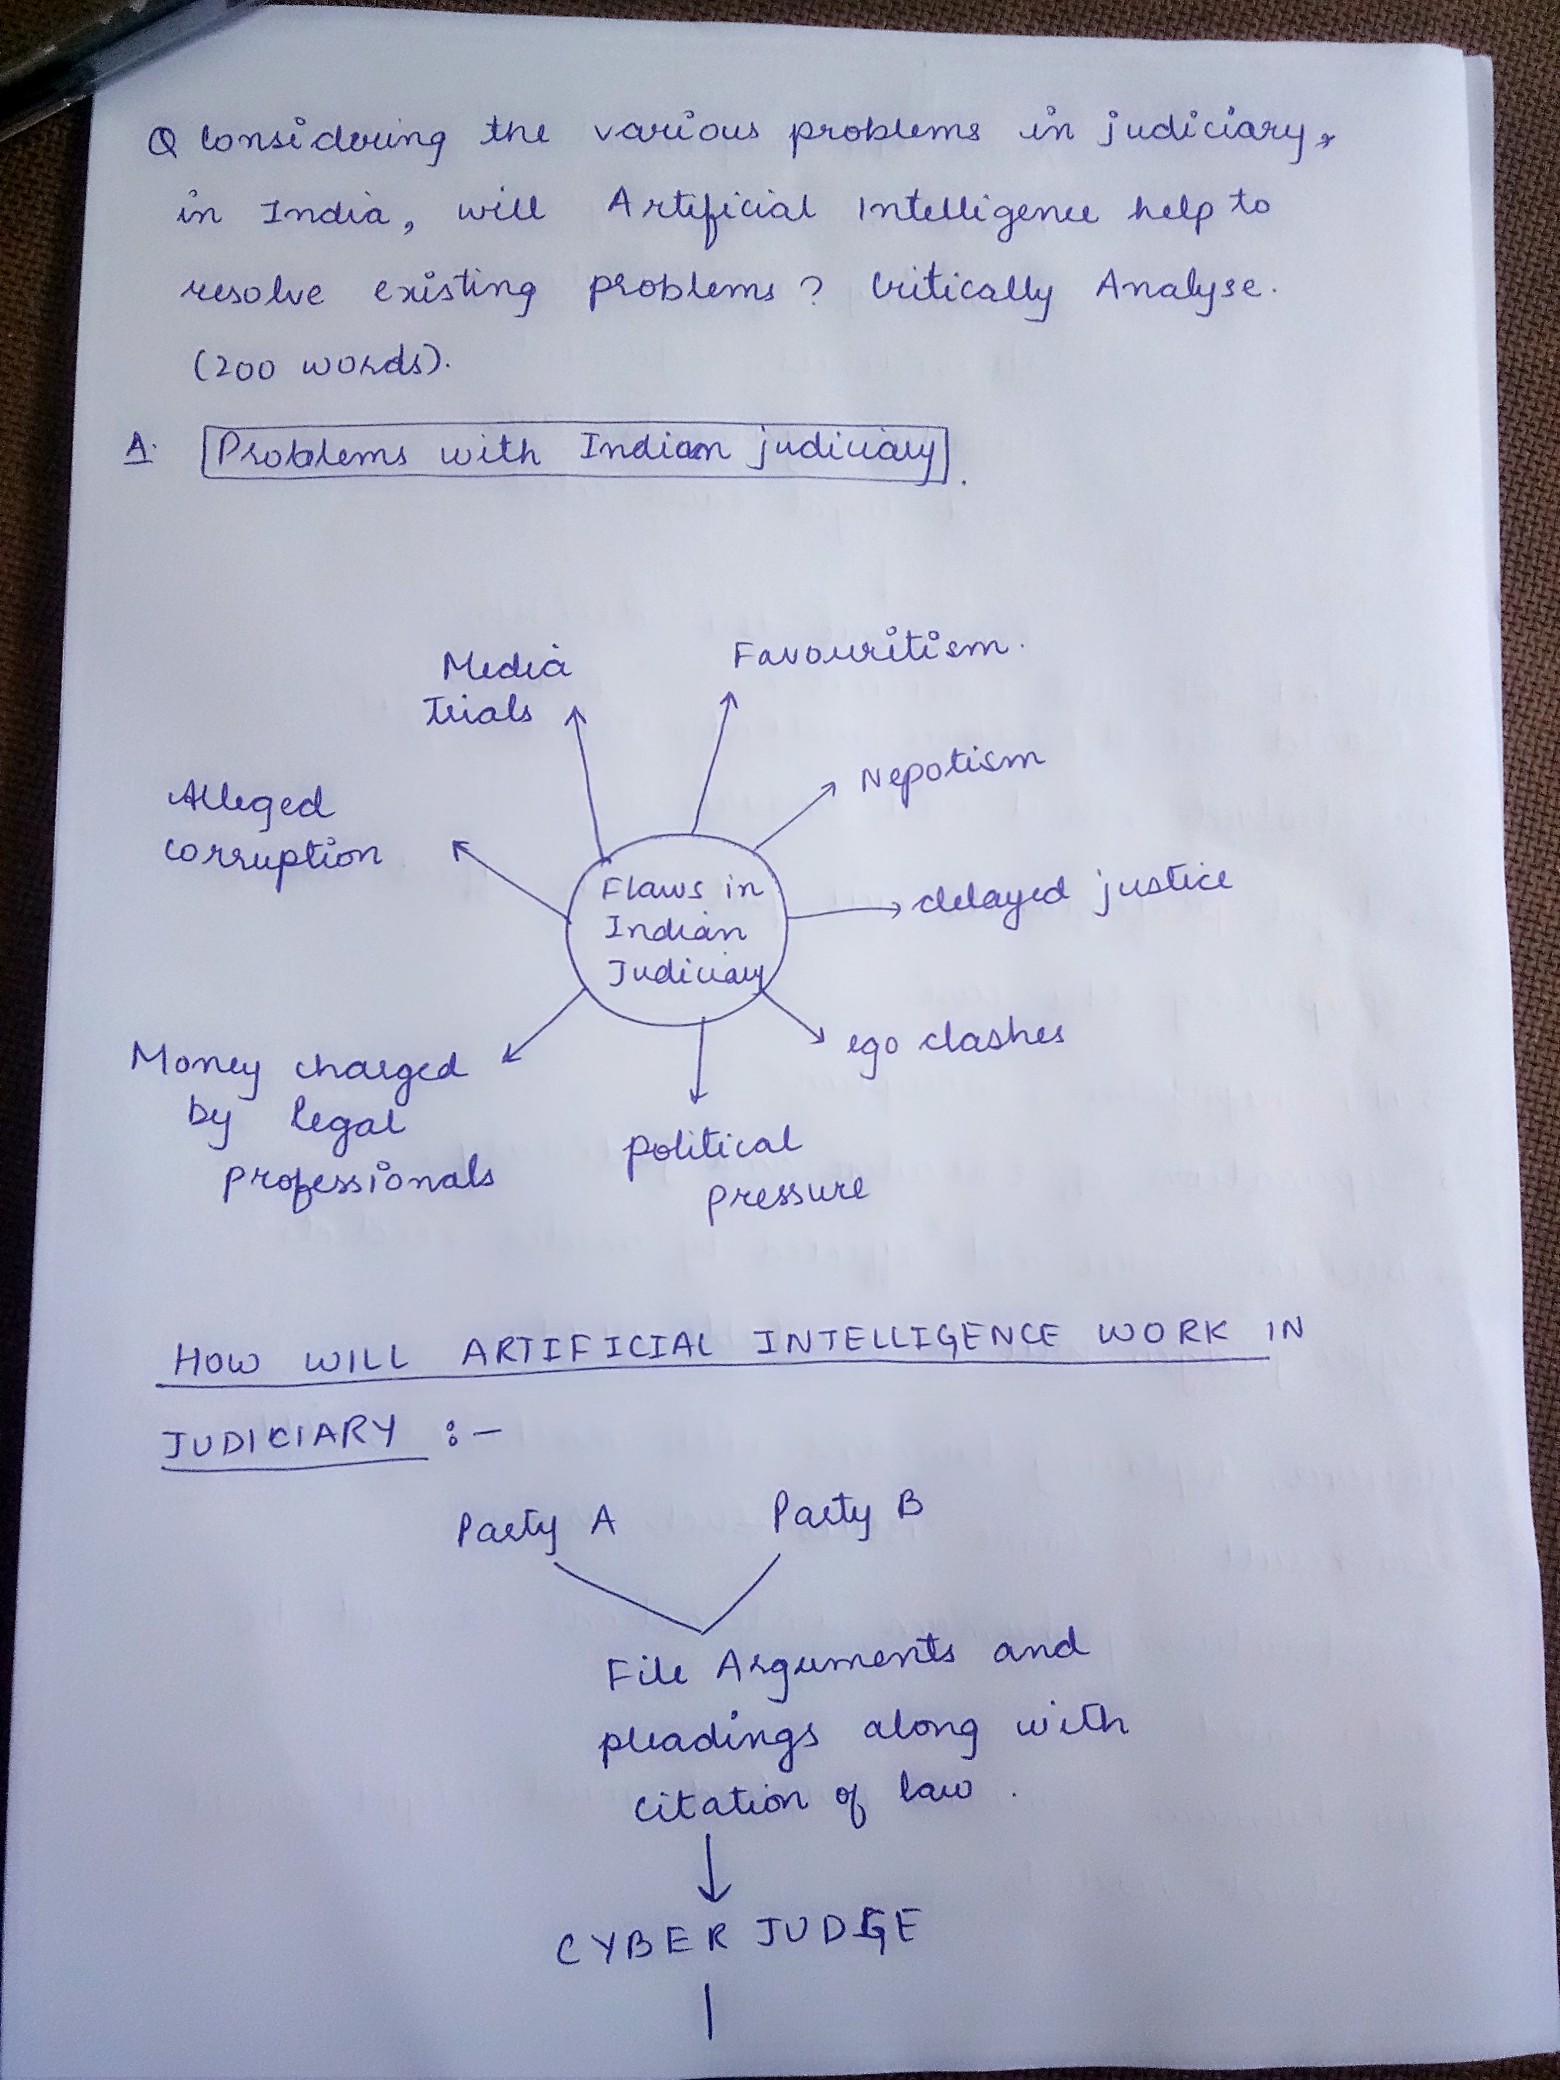 Q Considering the various problems in judiciary,
in India, will Artificial Intelligence help to
resolve existing problems? Critically Analyse.
(200 words).
A. Problems with Indian judiciary.
Media
Trials
Favouritism.
Nepotism
Alleged
corruption
Flaws in
Indian
Judiciary
delayed justice
ego clashes
Money charged
by legal
professionals
political
pressure
HOW WILL ARTIFICIAL INTELLIGENCE WORK IN
JUDICIARY :-
Party A
Party B
File Arguments and
pleadings along with
citation of law.
CYBER JUDGE